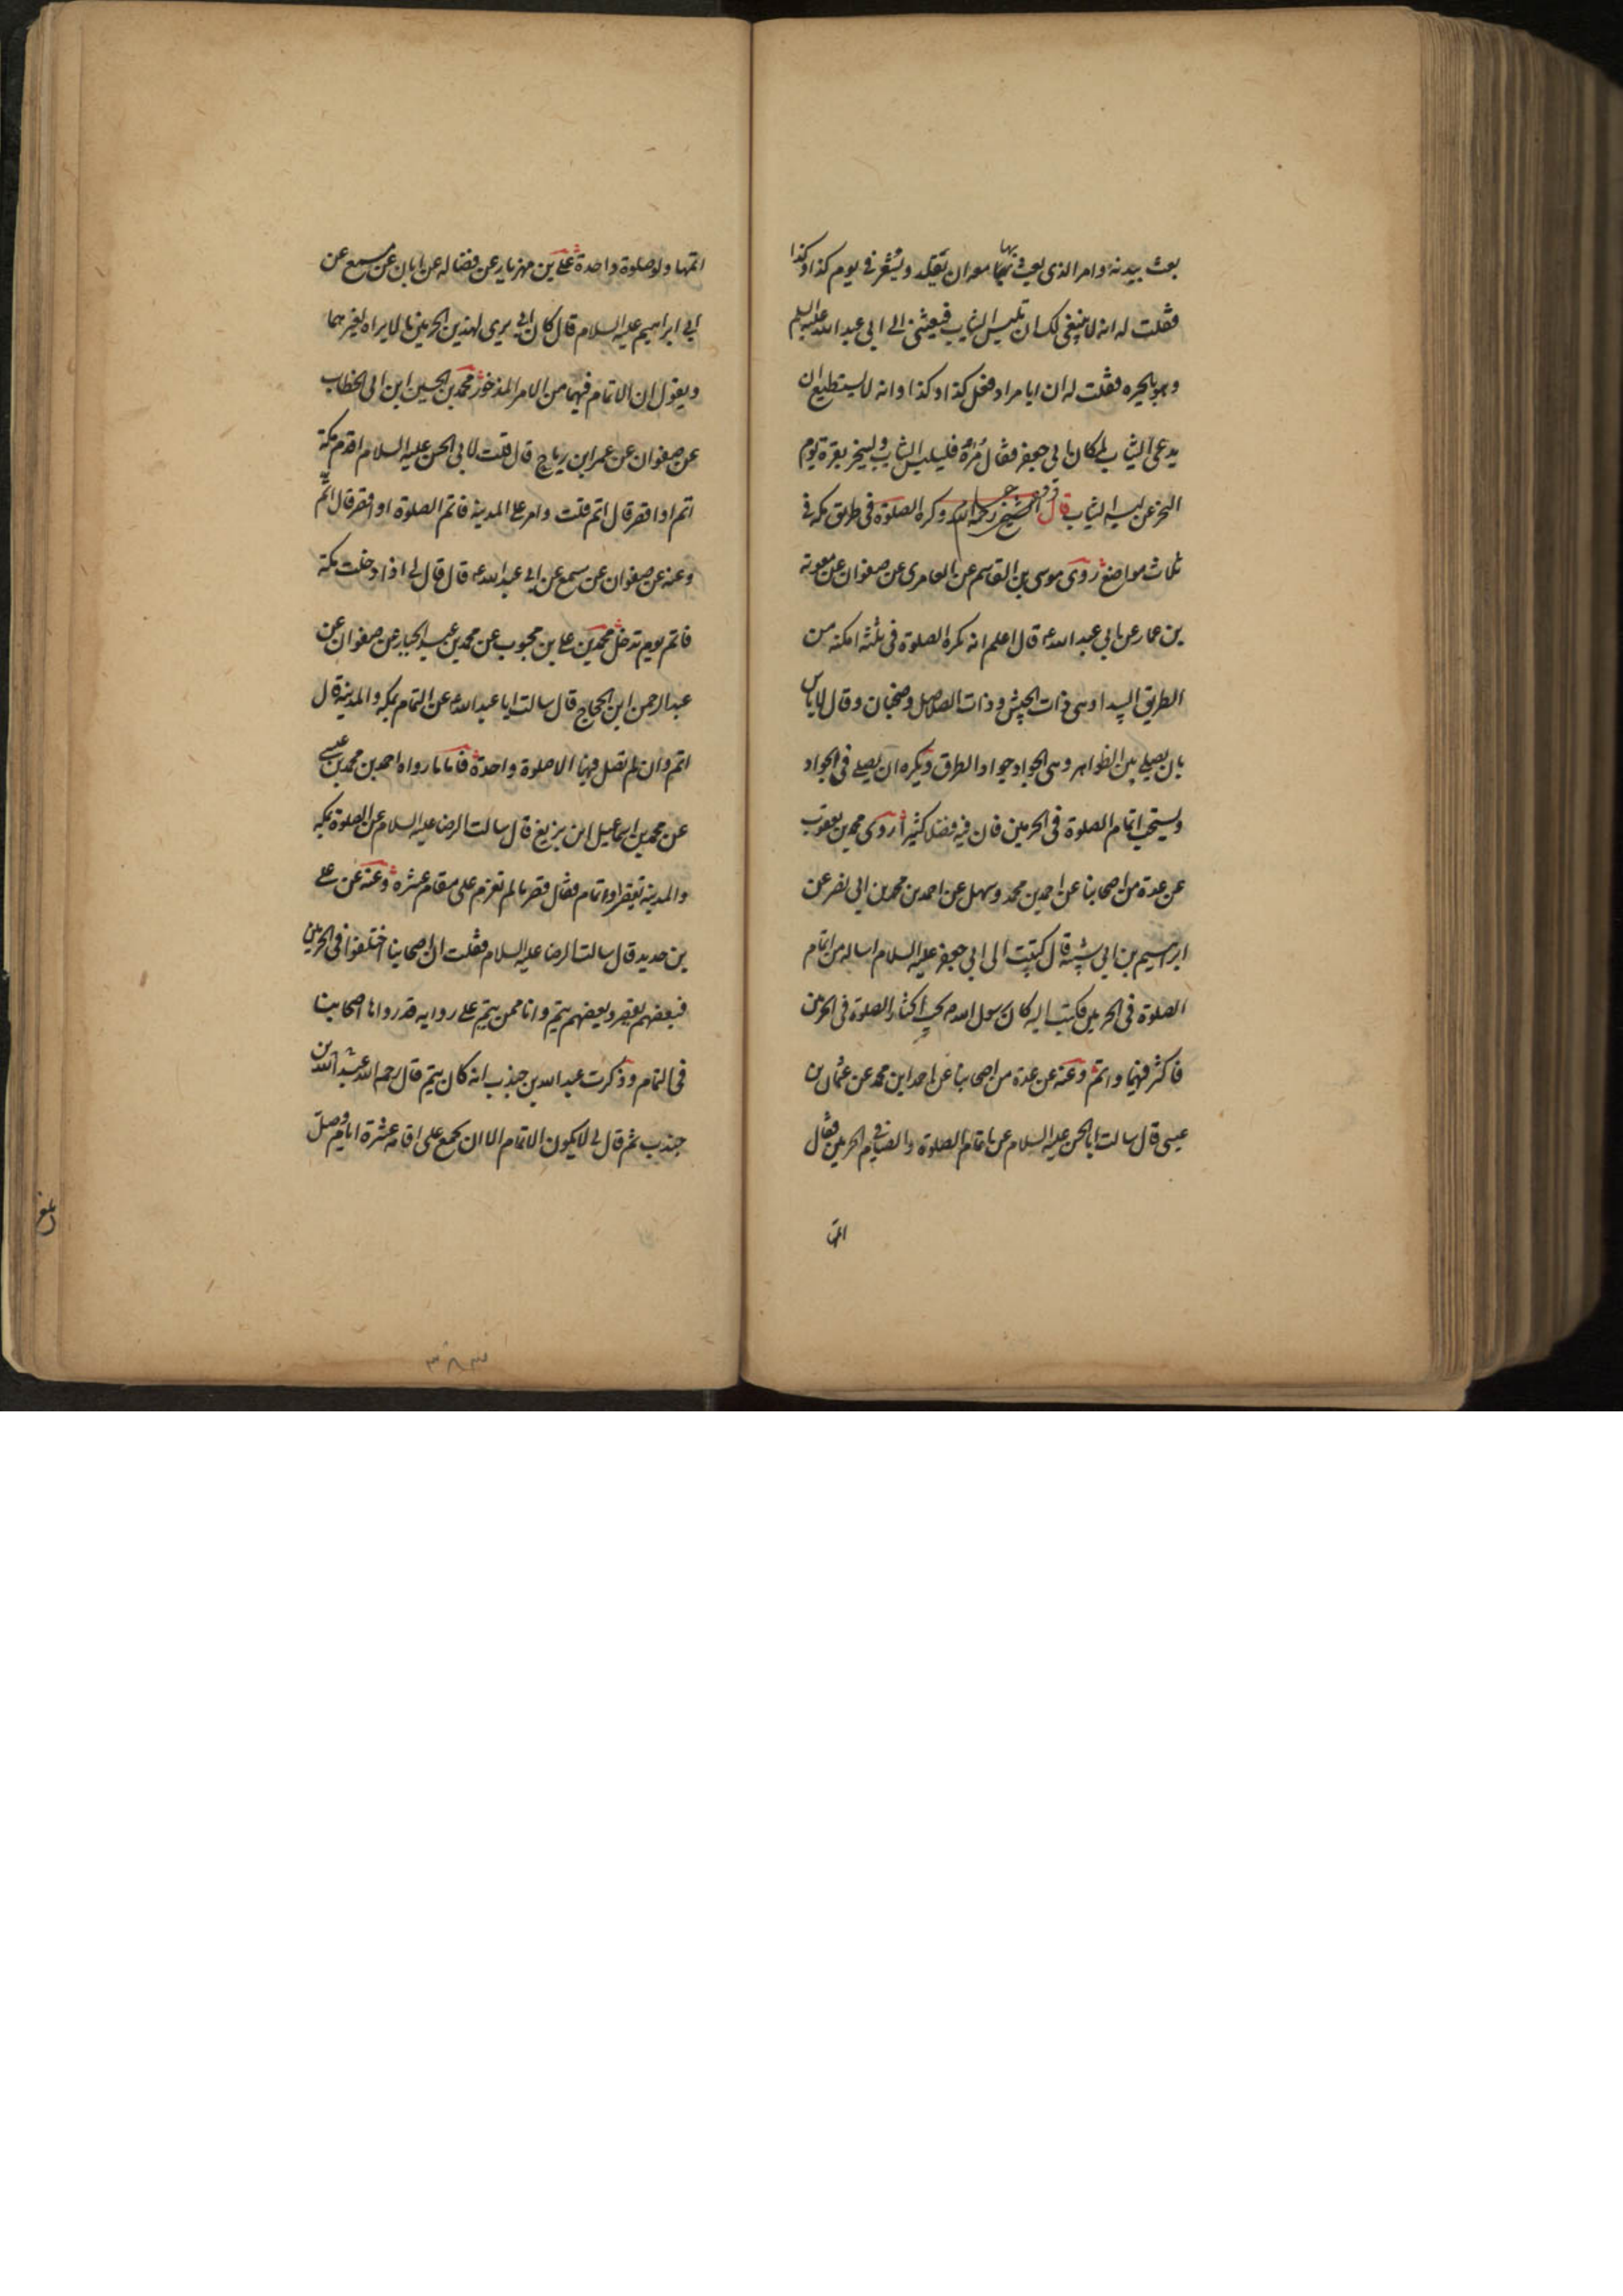 بعث ببدنه وامر الذى يبعث بها معه ان يقلد ويشعر فى يوم كذا وكذا
فقلت له انه لا ينبغى لك ان تلبس الثياب فبعثنى الى ابى عبد الله عليه السلم
وهو بالحيره فقلت له ان ابا مراد فعل كذا وكذا وانه لا يستطيع ان
يدع الثياب لمكان ابى جعفر فقال مره فليلبس الثياب ولينحر بقرة يوم
النحر عن لبسه الثياب قال الشيخ رحمه الله وكره الصلوة فى طريق مكه فى
ثلاث مواضع روى موسى بن القاسم عن العامرى عن صفوان عن معوية
بن عمار عن ابى عبد الله ع قال اعلم انه تكره الصلوة فى ثلثه امكنه من
الطريق البيدا وهى ذات الجيش وذات الصلاصل وضجنان وقال لا باس
بان يصلى بين الظواهر وهى الجواد جواد الطرق ويكره ان يصلى فى الجواد
ويستحب اتمام الصلوة فى الحرمين فان فيه فضلا كثيرا روى محمد بن يعقوب
عن عدة من اصحابنا عن احمد بن محمد وسهل عن احمد بن محمد بن ابى نصر عن
ابرهيم بن ابى شيبه قال كتبت الى ابى جعفر عليه السلام اساله من اتمام
الصلوة فى الحرمين فكتب اليه كان رسول الله ص يحب اكثار الصلوة فى الحرمين
فاكثر فيهما واتم وعنه عن عدة من اصحابنا عن احمد ابن محمد عن عثمان بن
عيسى قال سالت ابا الحسن عليه السلام عن اتمام الصلوة والصيام فى الحرمين فقال
اتمها
اتمها ولو صلوة واحدة على بن مهزيار عن فضاله عن ابان عن مسمع عن
ابى ابراهيم عليه السلام قال كان ابى يرى لهذين الحرمين ما لا يراه لغيرهما
ويقول ان الاتمام فيهما من الامر المذخور محمد بن الحسين ابن ابى الخطاب
عن صفوان عن عمر ابن رياح قال قلت لابى الحسن عليه السلام اقدم مكة
اتم او اقصر قال اتم قلت وامر على المدينة فاتم الصلوة او اقصر قال اتم
وعنه عن صفوان عن مسمع عن ابى عبد الله ع قال قال لى اذا دخلت مكة
فاتم يوم تدخل محمد بن على بن محبوب عن محمد بن عبد الجبار عن صفوان عن
عبد الرحمن ابن الحجاج قال سالت ابا عبد الله عن التمام بمكه والمدينة قال
اتم وان لم تصل فيها الا صلوة واحدة فاما ما رواه احمد بن محمد بن عيسى
عن محمد بن اسماعيل ابن بزيع قال سالت الرضا عليه السلام عن الصلوة بمكه
والمدينه تقصير او اتمام فقال قصر ما لم تعزم على مقام عشره وعنه عن على
بن حديد قال سالت الرضا عليه السلام فقلت ان اصحابنا اختلفوا فى الحرمين
فبعضهم يقصر وبعضهم يتم وانا ممن يتم على روايه قد رواها اصحابنا
فى التمام وذكرت عبد الله بن جندب انه كان يتم قال رحم الله عبد الله بن
جندب ثم قال لى لا يكون الاتمام الا ان تجمع على اقامه عشرة ايام وصل
بلغ